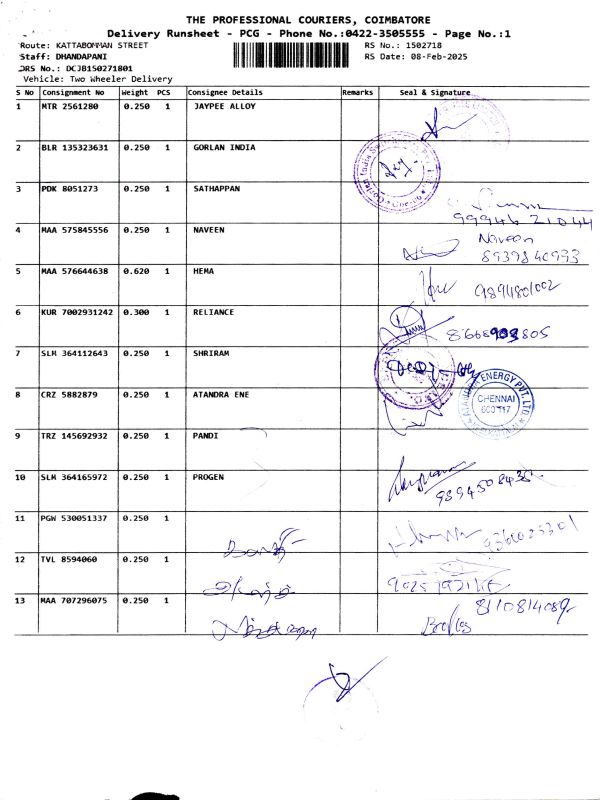 THE PROFESSIONAL COURIERS, COIMBATORE
Delivery Runsheet - PCG - Phone No.:0422-3505555 - Page No.:1
Route: KATTABOMMAN STREET
RS No.: 1502718
Staff: DHANDAPANI
RS Date: 08-Feb-2025
DRS No.: DCJB150271801
Vehicle: Two Wheeler Delivery
S No Consignment No Weight PCS Consignee Details Remarks Seal & Signature
1 MTR 2561280 0.250 1 JAYPEE ALLOY
2 BLR 135323631 0.250 1 GORLAN INDIA
3 PDK 8051273 0.250 1 SATHAPPAN
99946 21044
4 MAA 575845556 0.250 1 NAVEEN Naveen
8939840993
5 MAA 576644638 0.620 1 HEMA 9894801002
6 KUR 7002931242 0.300 1 RELIANCE
7 SLM 364112643 0.250 1 SHRIRAM
8 CRZ 5882879 0.250 1 ATANDRA ENE
ENERGY PVT. LTD
CHENNAI
9 TRZ 145692932 0.250 1 PANDI
10 SLM 364165972 0.250 1 PROGEN
11 PGW 530051337 0.250 1
12 TVL 8594060 0.250 1
13 MAA 707296075 0.250 1 8110814089